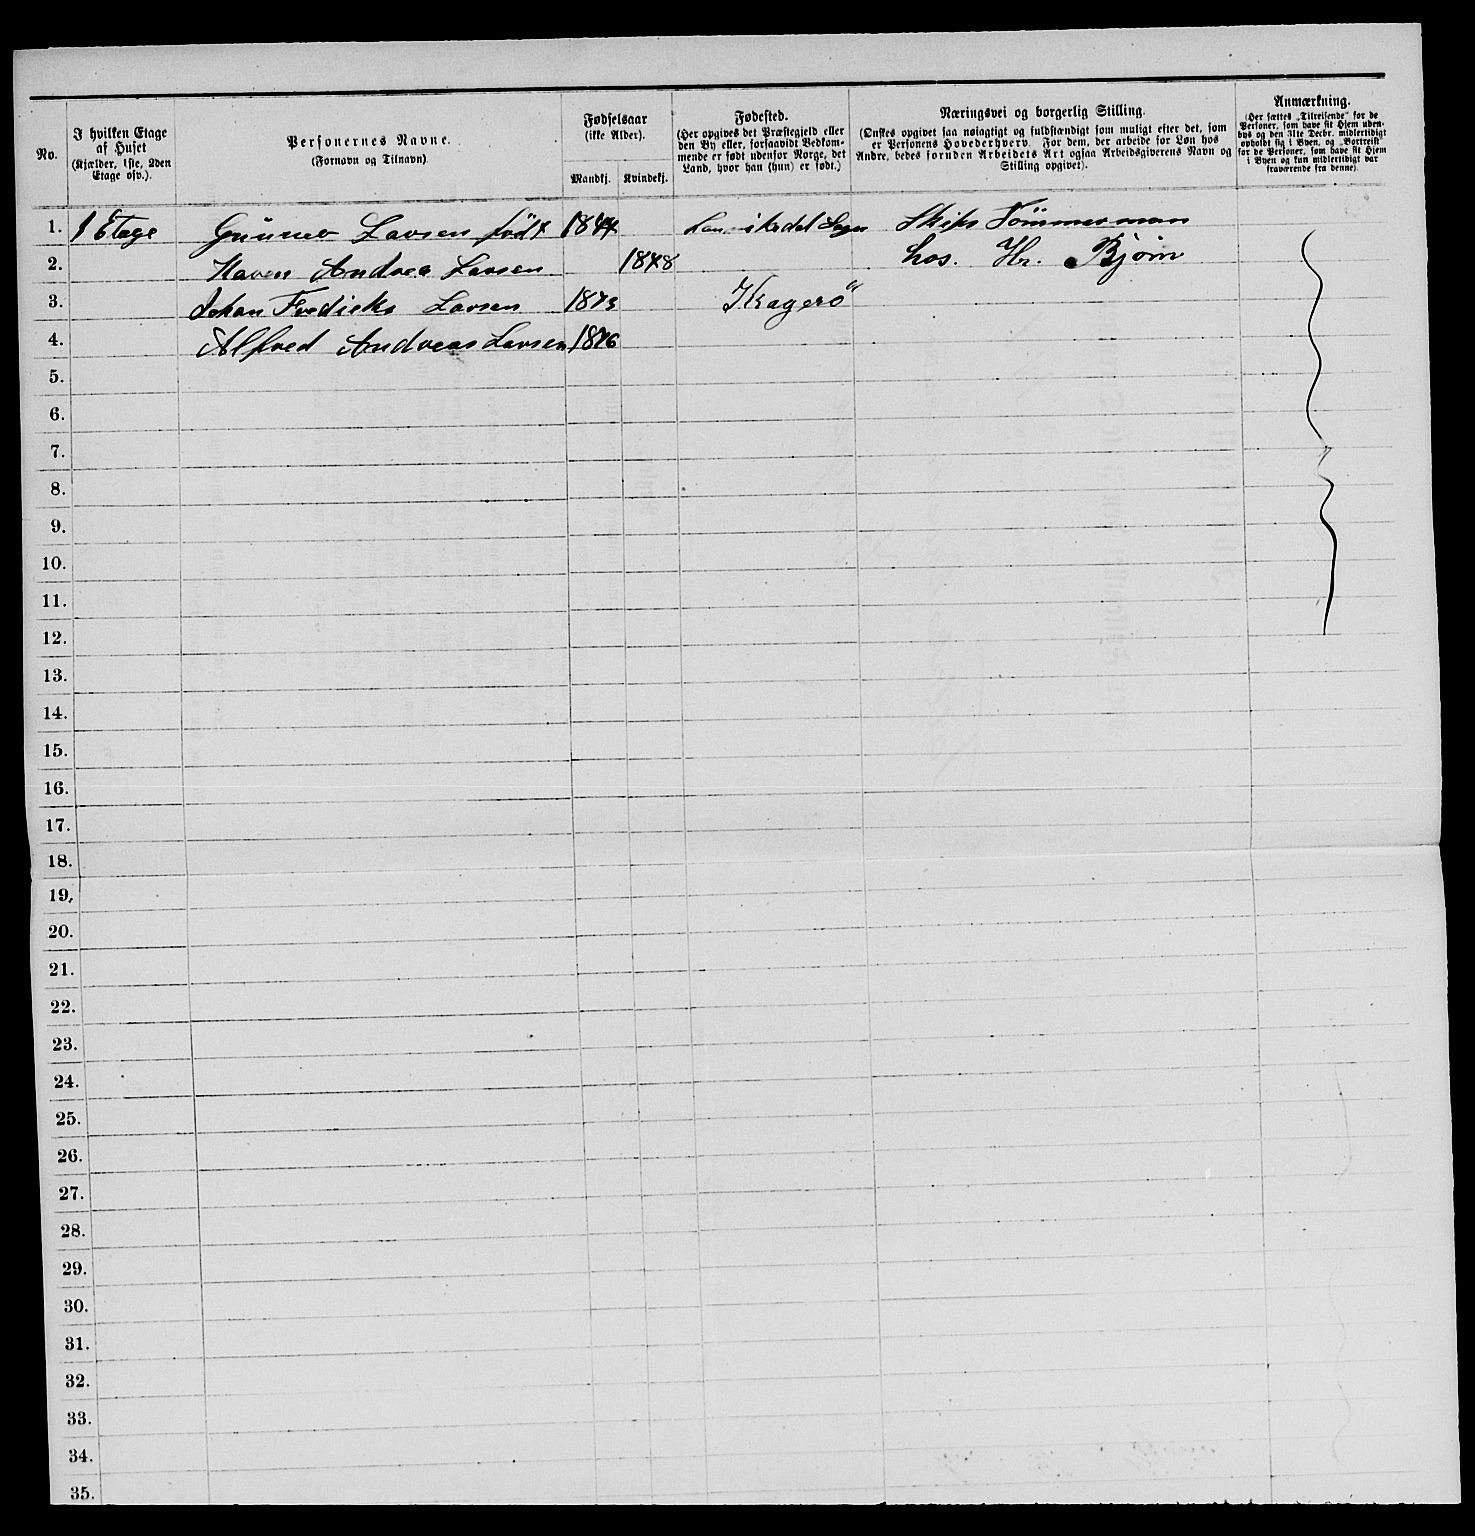 No.
I hvilken Etage af Huset (Kjælder, 1ste, 2den Etage osv.).
Personernes Navne. (Fornavn og Tilnavn)
Fødselsaar (ikke Alder).
Mandkj. Kvindekj.
Fødested. (Her opgives det Præstegjeld eller den By eller, forsaavidt Vedkommende er født udenfor Norge, det Land, hvor han (hun) er født.)
Næringsvei og borgerlig Stilling. (Ønskes opgivet saa nøiagtigt og fuldstændigt som muligt efter det, som er Personens Hovederhverv. For dem, der arbeide for Løn hos Andre, bedes foruden Arbeidets Art ogsaa Arbeidsgiverens Navn og Stilling opgivet).
Anmærkning. (Her sættes „Tilreisende“ for de Personer, som have sit Hjem udenbys og den 31te Decbr. midlertidigt opholdt sig i Byen, og „Bortreist“ for de Personer, som have sit Hjem i Byen og kun midlertidigt var fraværende fra denne)
1. 1 Etage Gunner Larsen født 1844 Skibs Tømmerman
2. Karen Andrea Larsen 1848 hos. Hr. Bjørn
3. Johan Fredicks Larsen 1873 Kragerö
4. Alfred Andreas Larsen 1876
5.
6.
7.
8.
9.
10.
11.
12.
13.
14.
15.
16.
17.
18.
19.
20.
21.
22.
23.
24.
25.
26.
27.
28.
29.
30.
31.
32.
33.
34.
35.